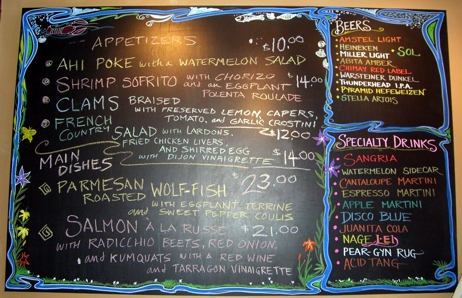 APPETIZERS
$10.00
AHI POKE WITH A WATERMELON SALAD
SHRIMP SOFRITO WITH CHORIZO
and an EGGPLANT $14.00
POLENTA ROULADE
CLAMS BRAISED
WITH PRESERVED LEMON, CAPERS,
TOMATO, and GARLIC CROSTINI
$12.00
FRENCH
COUNTRY SALAD WITH LARDONS,
FRIED CHICKEN LIVERS,
AND SHIRRED EGG
WITH DIJON VINAIGRETTE $14.00
MAIN
DISHES
$23.00
PARMESAN WOLF-FISH
ROASTED WITH EGGPLANT TERRINE
and SWEET PEPPER COULIS
SALMON À LA RUSSE $21.00
WITH RADICCHIO BEETS, RED ONION,
and KUMQUATS WITH A RED WINE
and TARRAGON VINAIGRETTE
BEERS
AMSTEL LIGHT
HEINEKEN
MILLER LIGHT SOL
ABITA AMBER
CHIMAY RED LABEL
WARSTEINER DUNKEL
THUNDERHEAD I.P.A.
PYRAMID HEFEWEIZEN
STELLA ARTOIS
SPECIALTY DRINKS
SANGRIA
WATERMELON SIDECAR
CANTALOUPE MARTINI
ESPRESSO MARTINI
APPLE MARTINI
DISCO BLUE
JUANITA COLA
NAGE
PEAR-GYN RUG
ACID TANG